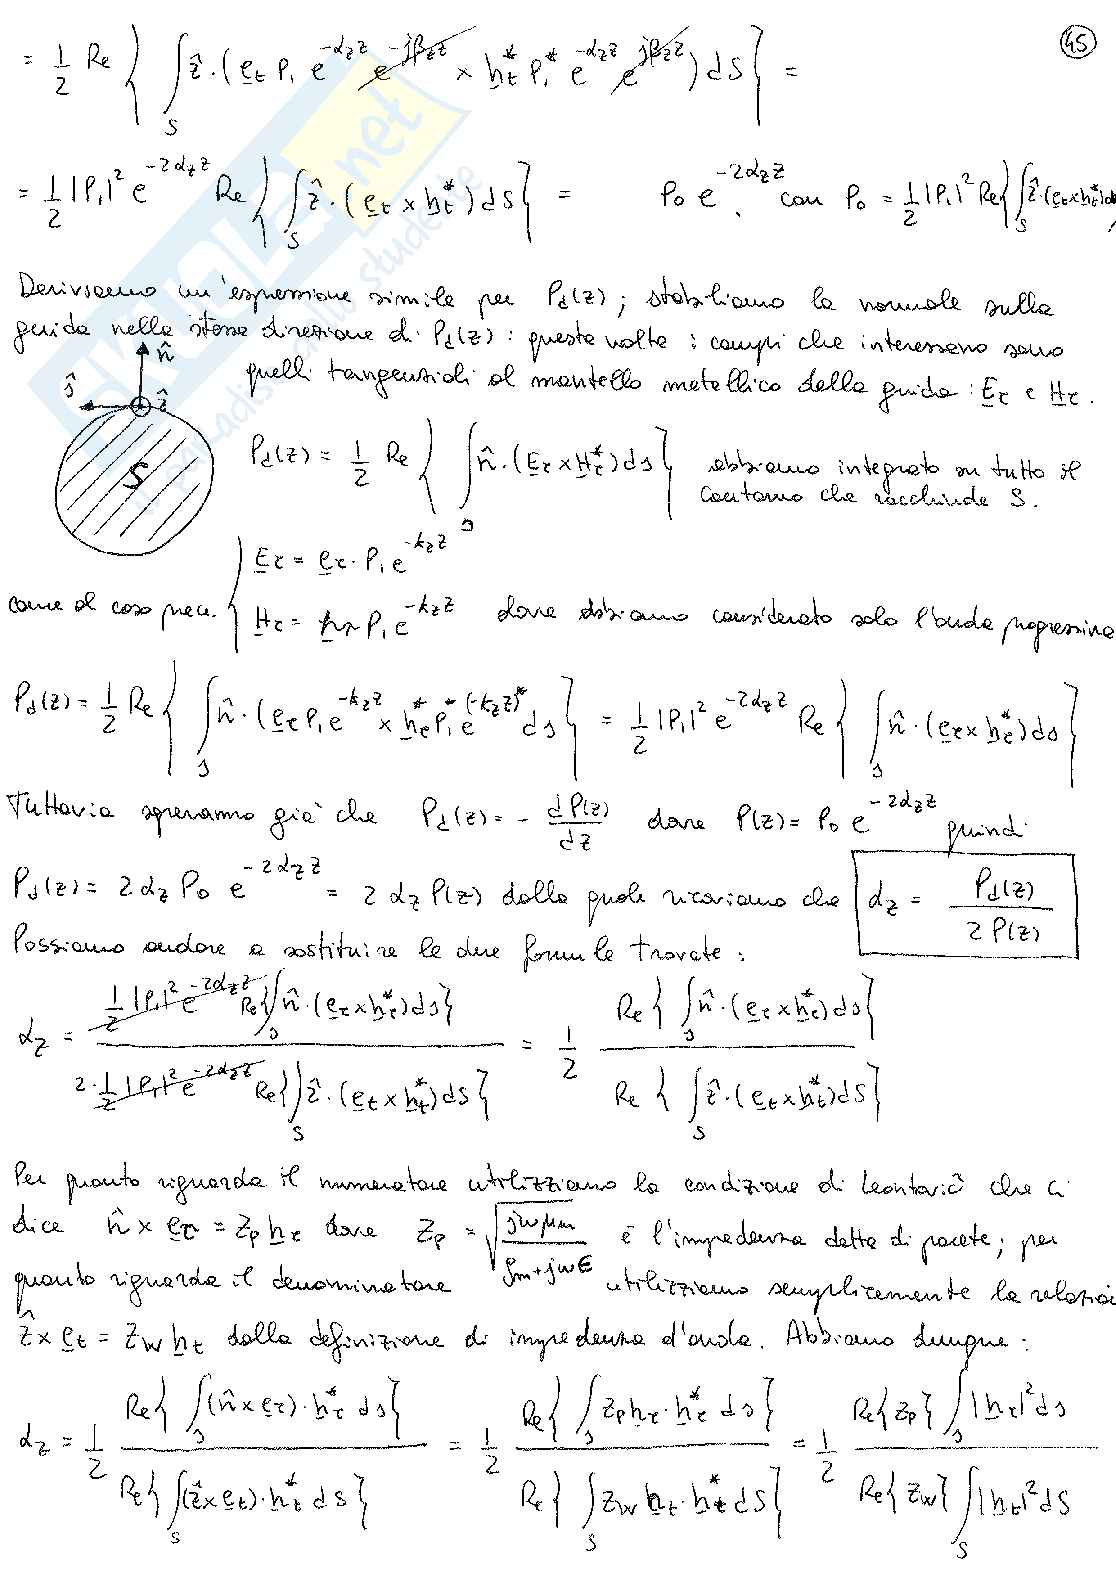 45
= 1/2 Re { ∫_S ẑ·(e_t P₁ e^{-α_z z} e^{-jβ_z z} × h_t^* P₁^* e^{-α_z z} e^{jβ_z z}) dS } =
= 1/2 |P₁|² e^{-2α_z z} Re { ∫_S ẑ·(e_t × h_t^*) dS } = P₀ e^{-2α_z z}, con P₀ = 1/2 |P₁|² Re{ ∫_S ẑ·(e_t × h_t^*) dS
Deriviamo un'espressione simile per P_d(z); stabiliamo la normale sulla
guida nella stessa direzione di P_d(z): questa volta i campi che interessano sono
quelli tangenziali al mantello metallico della guida: E_τ e H_τ.
n̂
ŝ
ẑ
S
P_d(z) = 1/2 Re { ∫_s n̂·(E_τ × H_τ^*) ds } abbiamo integrato su tutto il
contorno che racchiude S.
come al caso prec. { E_τ = e_τ· P₁ e^{-k_z z}
H_τ = h_τ P₁ e^{-k_z z} dove abbiamo considerato solo l'onda progressiva
P_d(z) = 1/2 Re { ∫_s n̂·(e_τ P₁ e^{-k_z z} × h_τ^* P₁^* e^{(-k_z z)^*} ds } = 1/2 |P₁|² e^{-2α_z z} Re { ∫_s n̂·(e_τ × h_τ^*) ds }
Tuttavia sapevamo già che P_d(z) = - dP(z)/dz dove P(z) = P₀ e^{-2α_z z} quindi
P_d(z) = 2α_z P₀ e^{-2α_z z} = 2α_z P(z) dalla quale ricaviamo che α_z = P_d(z) / 2P(z)
Possiamo andare a sostituire le due formule trovate:
α_z = 1/2 |P₁|² e^{-2α_z z} Re{ ∫_s n̂·(e_τ × h_τ^*) ds } / 2·1/2 |P₁|² e^{-2α_z z} Re{ ∫_S ẑ·(e_t × h_t^*) dS } = 1/2 Re { ∫_s n̂·(e_τ × h_τ^*) ds } / Re { ∫_S ẑ·(e_t × h_t^*) dS }
Per quanto riguarda il numeratore utilizziamo la condizione di Leontovič che ci
dice n̂ × e_τ = Z_p h_τ dove Z_p = √(jωμ_m / g_m + jωε) è l'impedenza detta di parete; per
quanto riguarda il denominatore utilizziamo semplicemente la relazio
ẑ × e_t = Z_w h_t dalla definizione di impedenza d'onda. Abbiamo dunque:
α_z = 1/2 Re{ ∫_s (n̂ × e_τ)·h_τ^* ds } / Re{ ∫_S (ẑ × e_t)·h_t^* dS } = 1/2 Re{ ∫_s Z_p h_τ·h_τ^* ds } / Re{ ∫_S Z_w h_t·h_t^* dS } = 1/2 Re{Z_p} ∫_s |h_τ|² ds / Re{Z_w} ∫_S |h_t|² dS